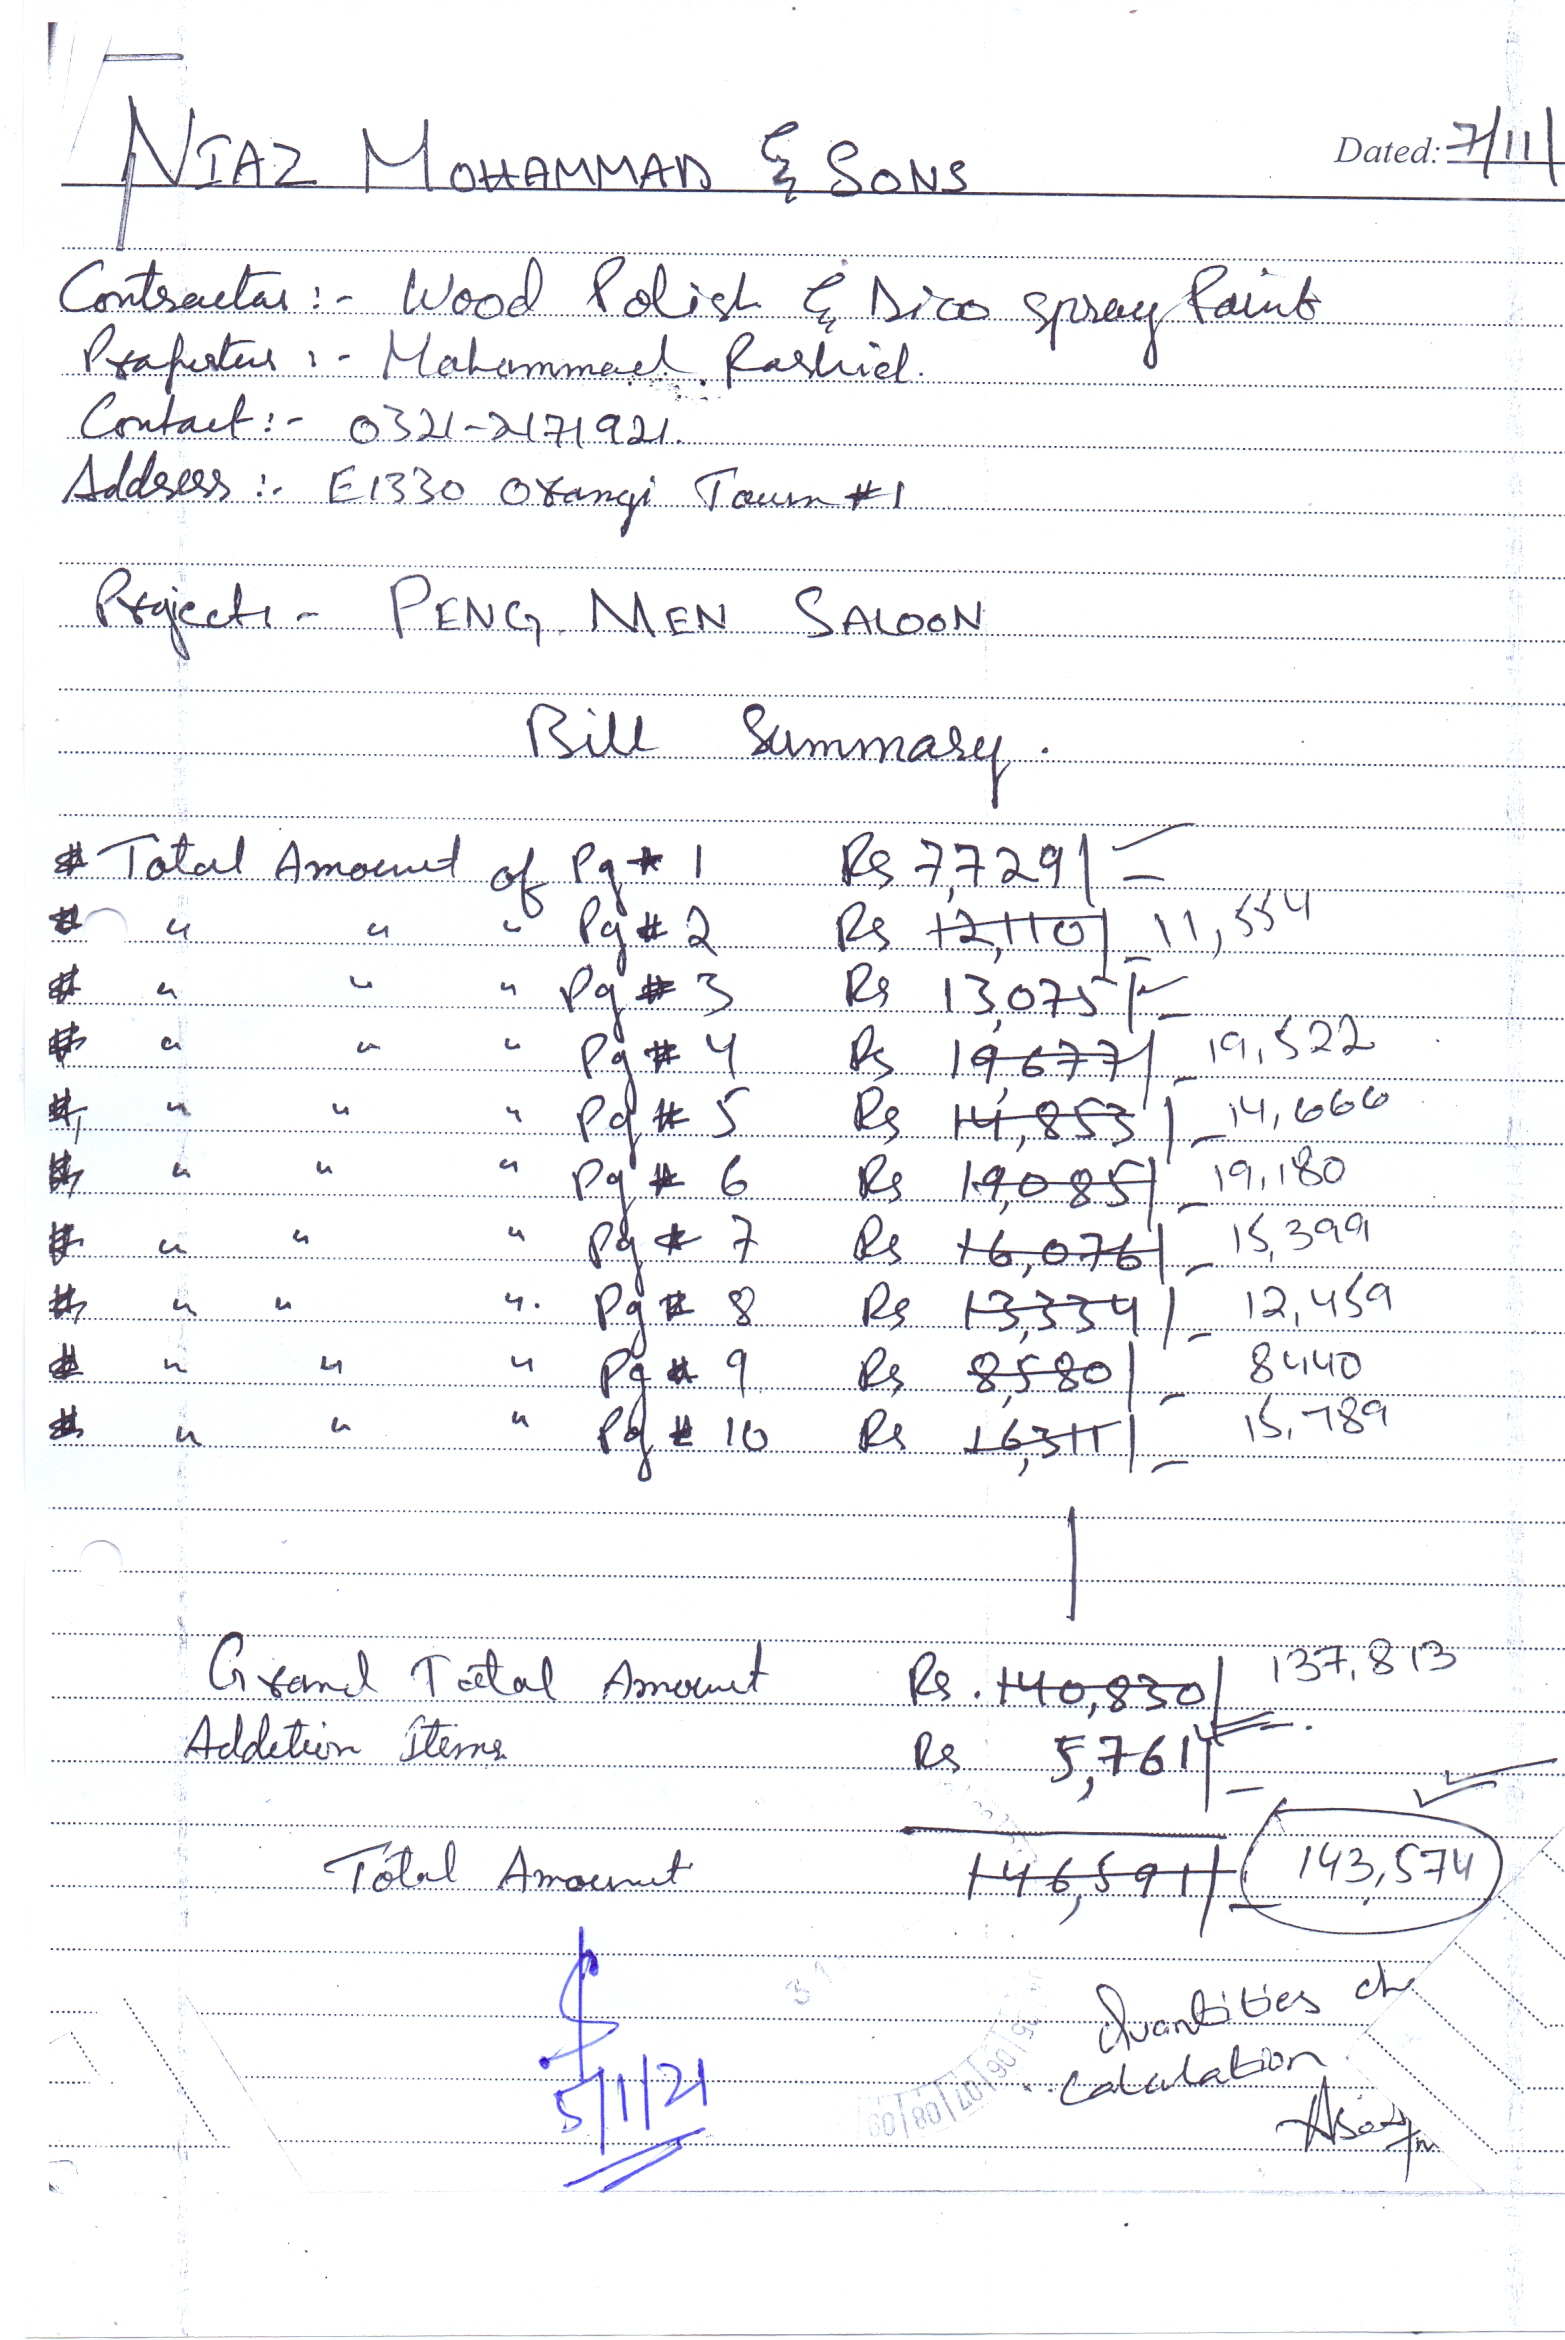 NIAZ MOHAMMAD & SONS
Dated: 7/11/
Contractor :- Wood Polish & Dico Spray Paint
Mohammad Rashid.
Contact :- 0321-2171921.
Address :- E1330 Orangi Town #1
Project :- PENG MEN SALOON
Bill Summary.
# Total Amount of Pg # 1 Rs 7,729/-
# " " " Pg # 2 Rs 12,110/- 11,554
# " " " Pg # 3 Rs 13,075/-
# " " " Pg # 4 Rs 19,677/- 19,522
# " " " Pg # 5 Rs 14,853/- 14,666
# " " " Pg # 6 Rs 19,085/- 19,180
# " " " Pg # 7 Rs 16,076/- 15,399
# " " " Pg # 8 Rs 13,334/- 12,459
# " " " Pg # 9 Rs 8,580/- 8440
# " " " Pg # 10 Rs 16,311/- 15,789
Grand Total Amount Rs. 140,830/- 137,813
Addition Items Rs 5,761/-
Total Amount 146,591/- 143,574
5/1/21
Quantities
calculation